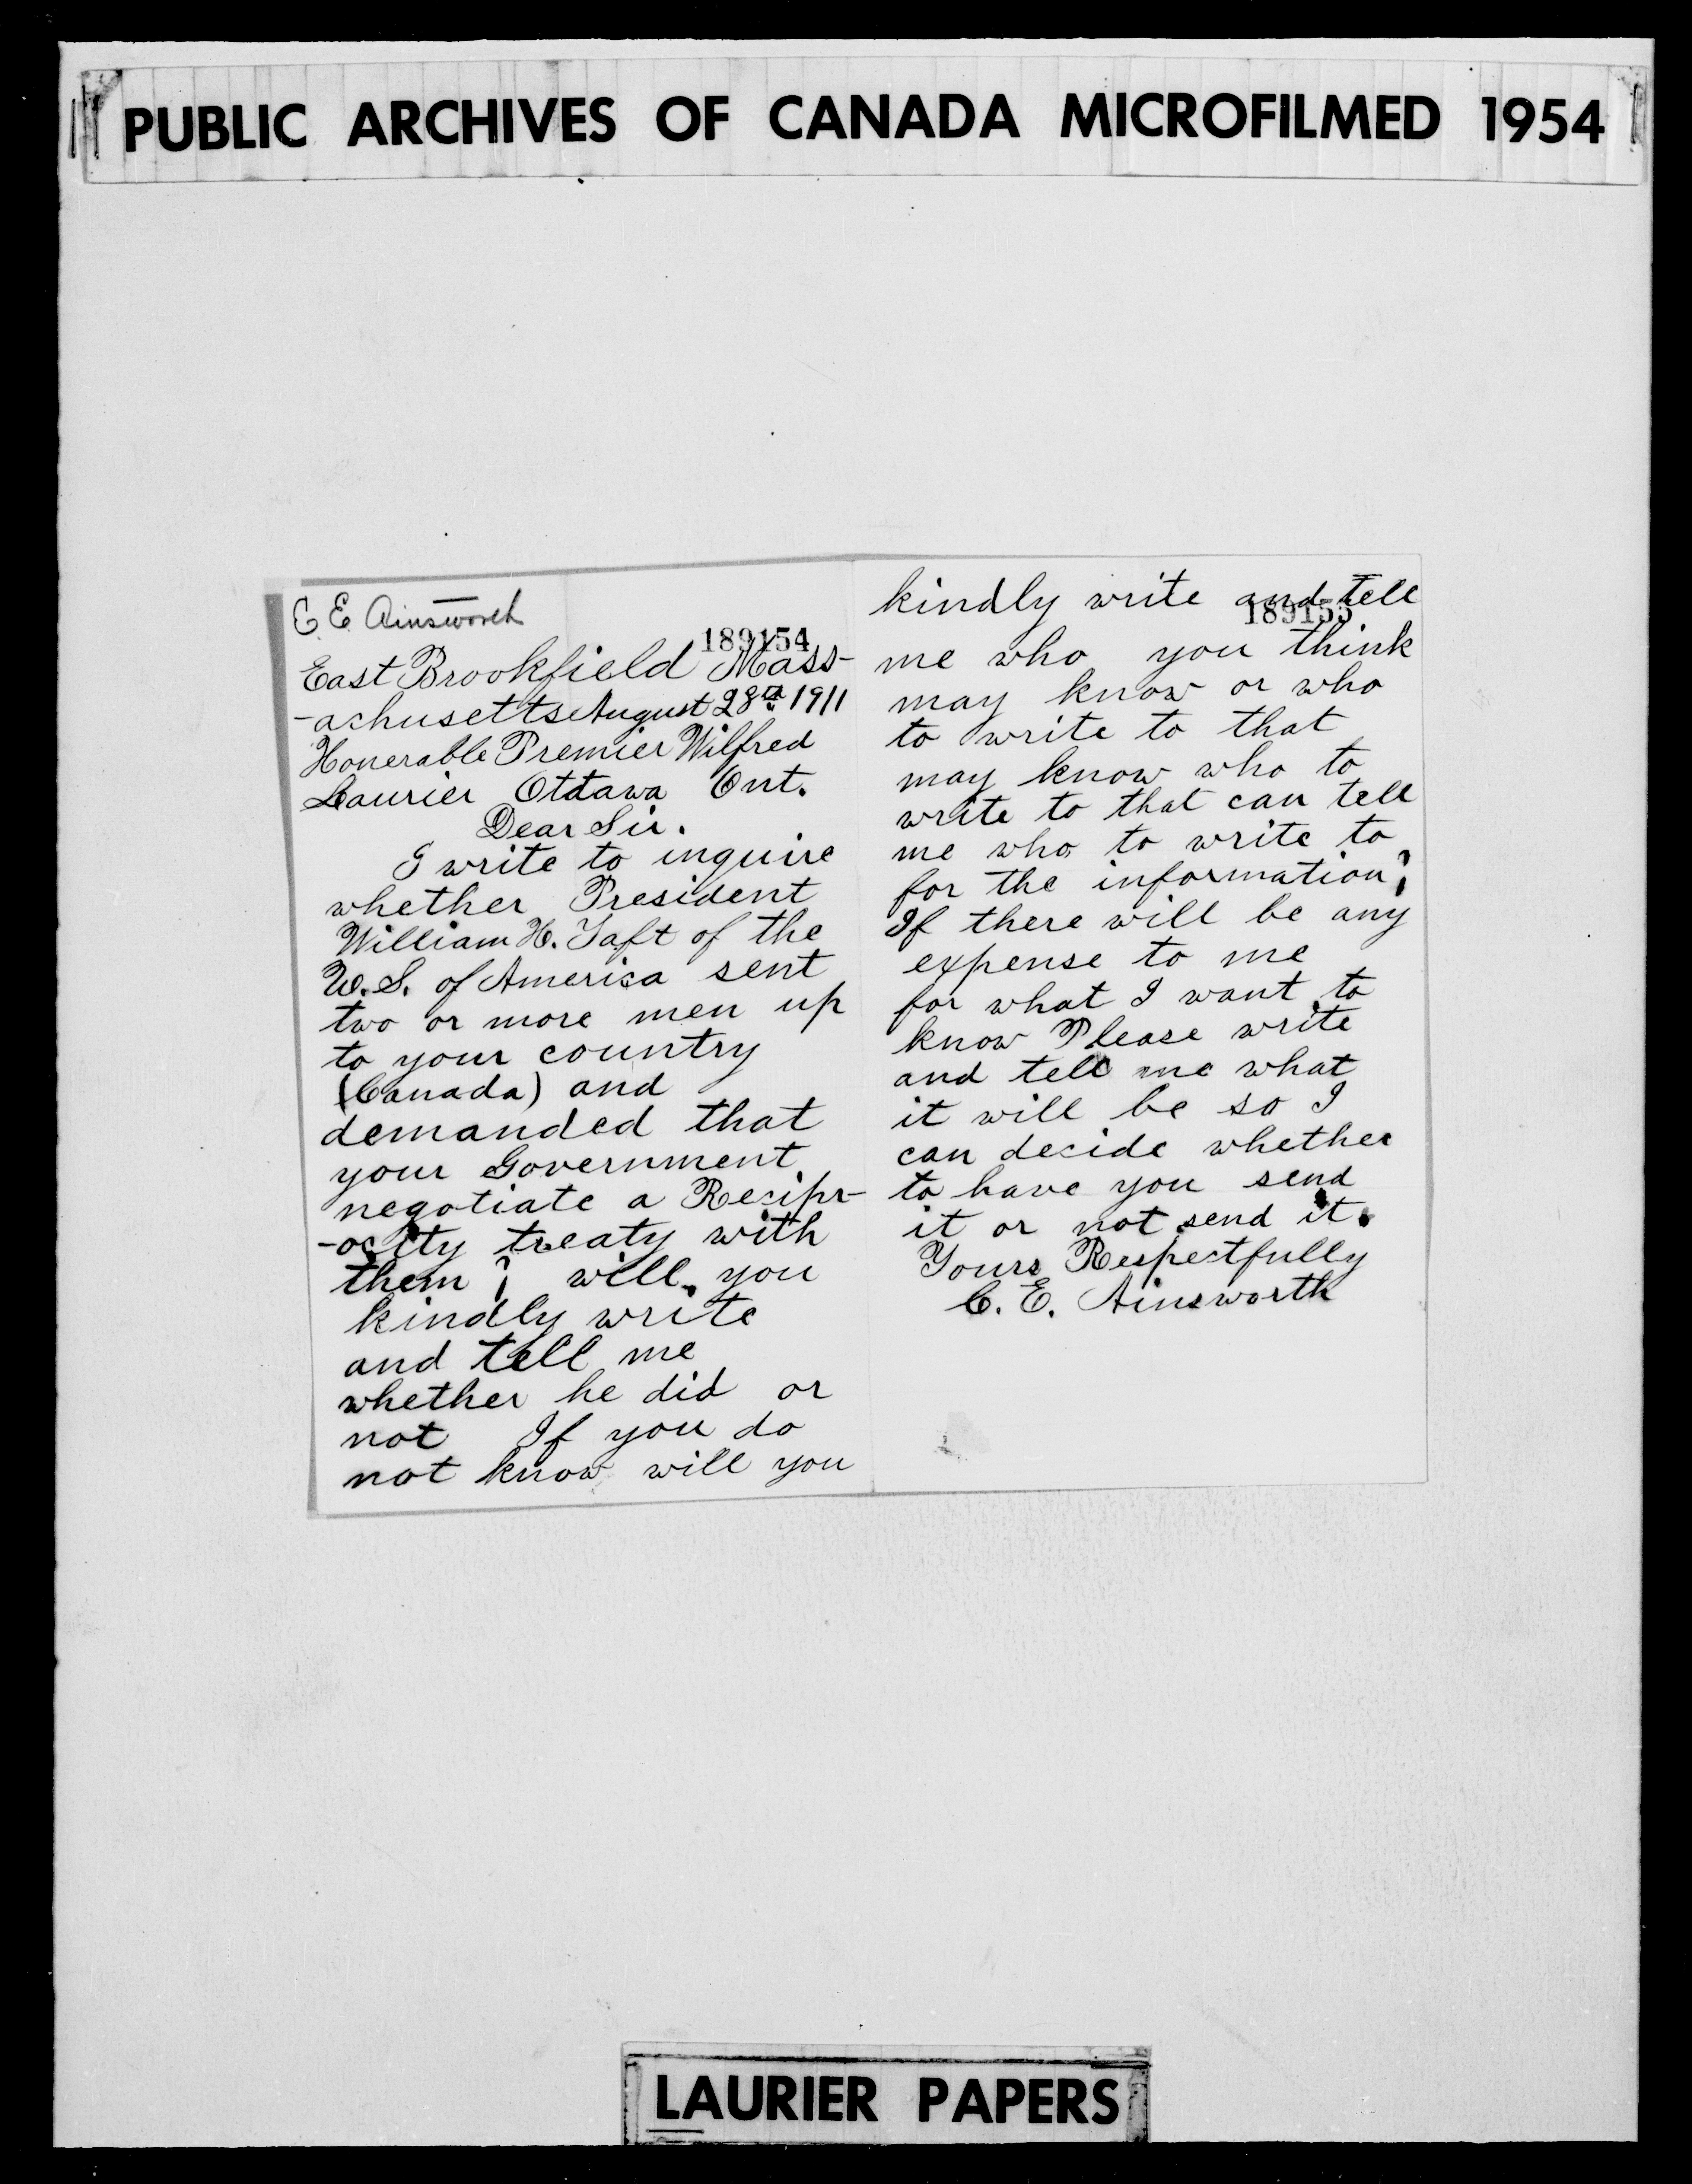 PUBLIC ARCHIVES OF CANADA MICROFILMED 1954
C E Ainsworth
189154
East Brookfield Mass-
-achusetts August 28th 1911
Honerable Premier Wilfred
Laurier Ottawa Ont.
Dear Sir.
I write to inquire
whether President
William H. Taft of the
U.S. of America sent
two or more men up
to your country
(Canada) and
demanded that
your Government
negotiate a Recipr-
-ocity treaty with
them? will you
kindly write
and tell me
whether he did or
not If you do
not know will you
189155
kindly write and tell
me who you think
may know or who
to write to that
may know who to
write to that can tell
me who to write to
for the information?
If there will be any
expense to me
for what I want to
know Please write
and tell me what
it will be so I
can decide whether
to have you send
it or not send it.
Yours Respectfully
C. E. Ainsworth
LAURIER PAPERS